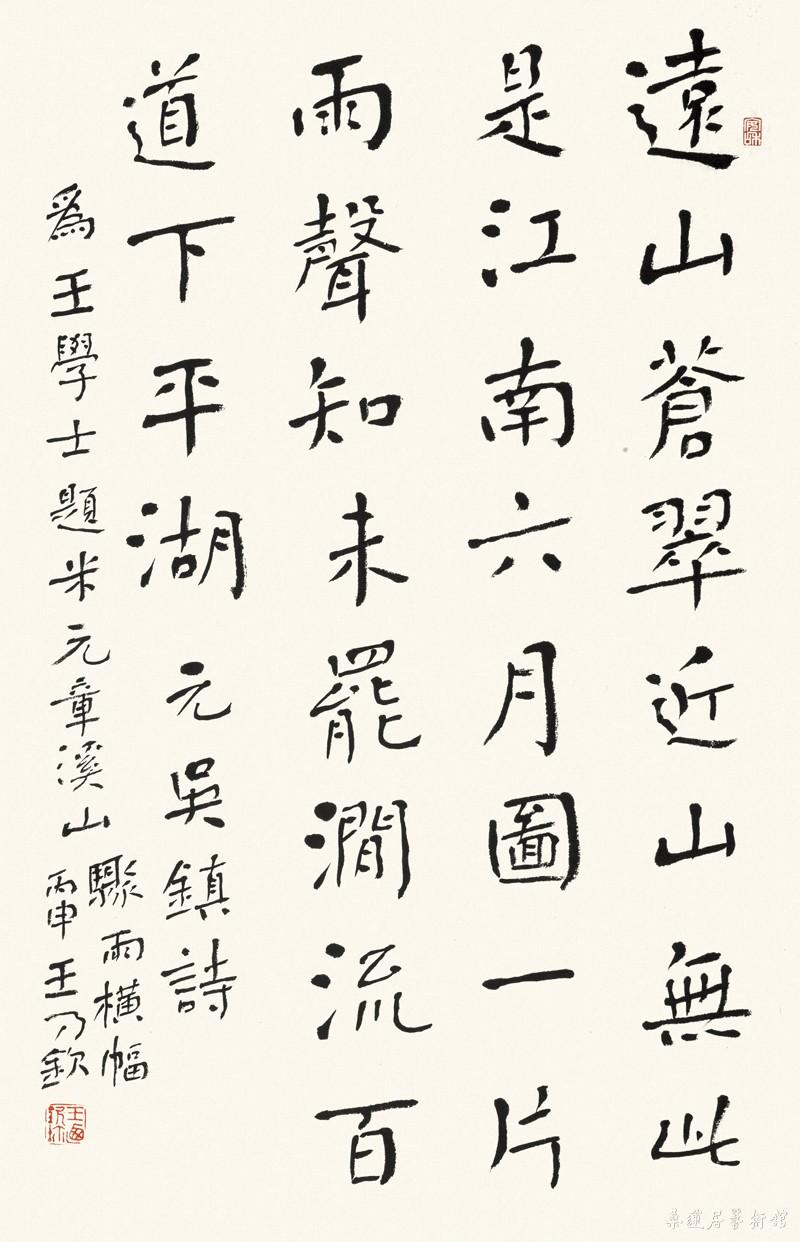 遠山蒼翠近山無此
是江南六月圖一片
雨聲知未罷澗流百
道下平湖 元吳鎮詩
爲王學士題米元章溪山
驟雨橫幅
丙申王乃欽
居藝術館